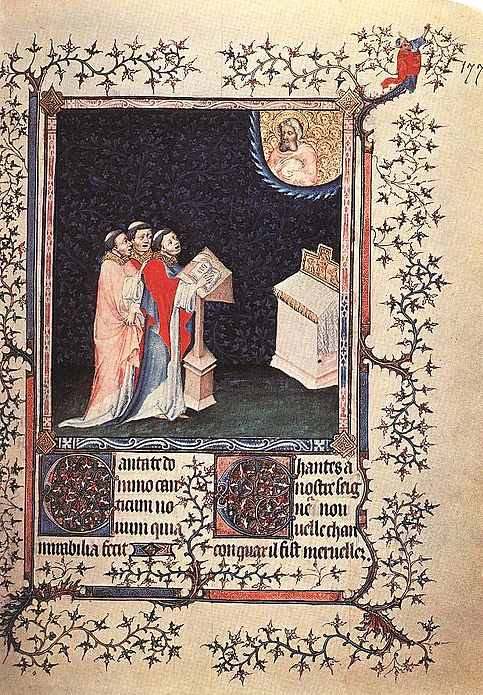 177
Cantate do
mino can
ticum no
uum quia
mirabilia fecit
Chantes a
nostre seig
nou
uelle chan
con quar il fist merueilles